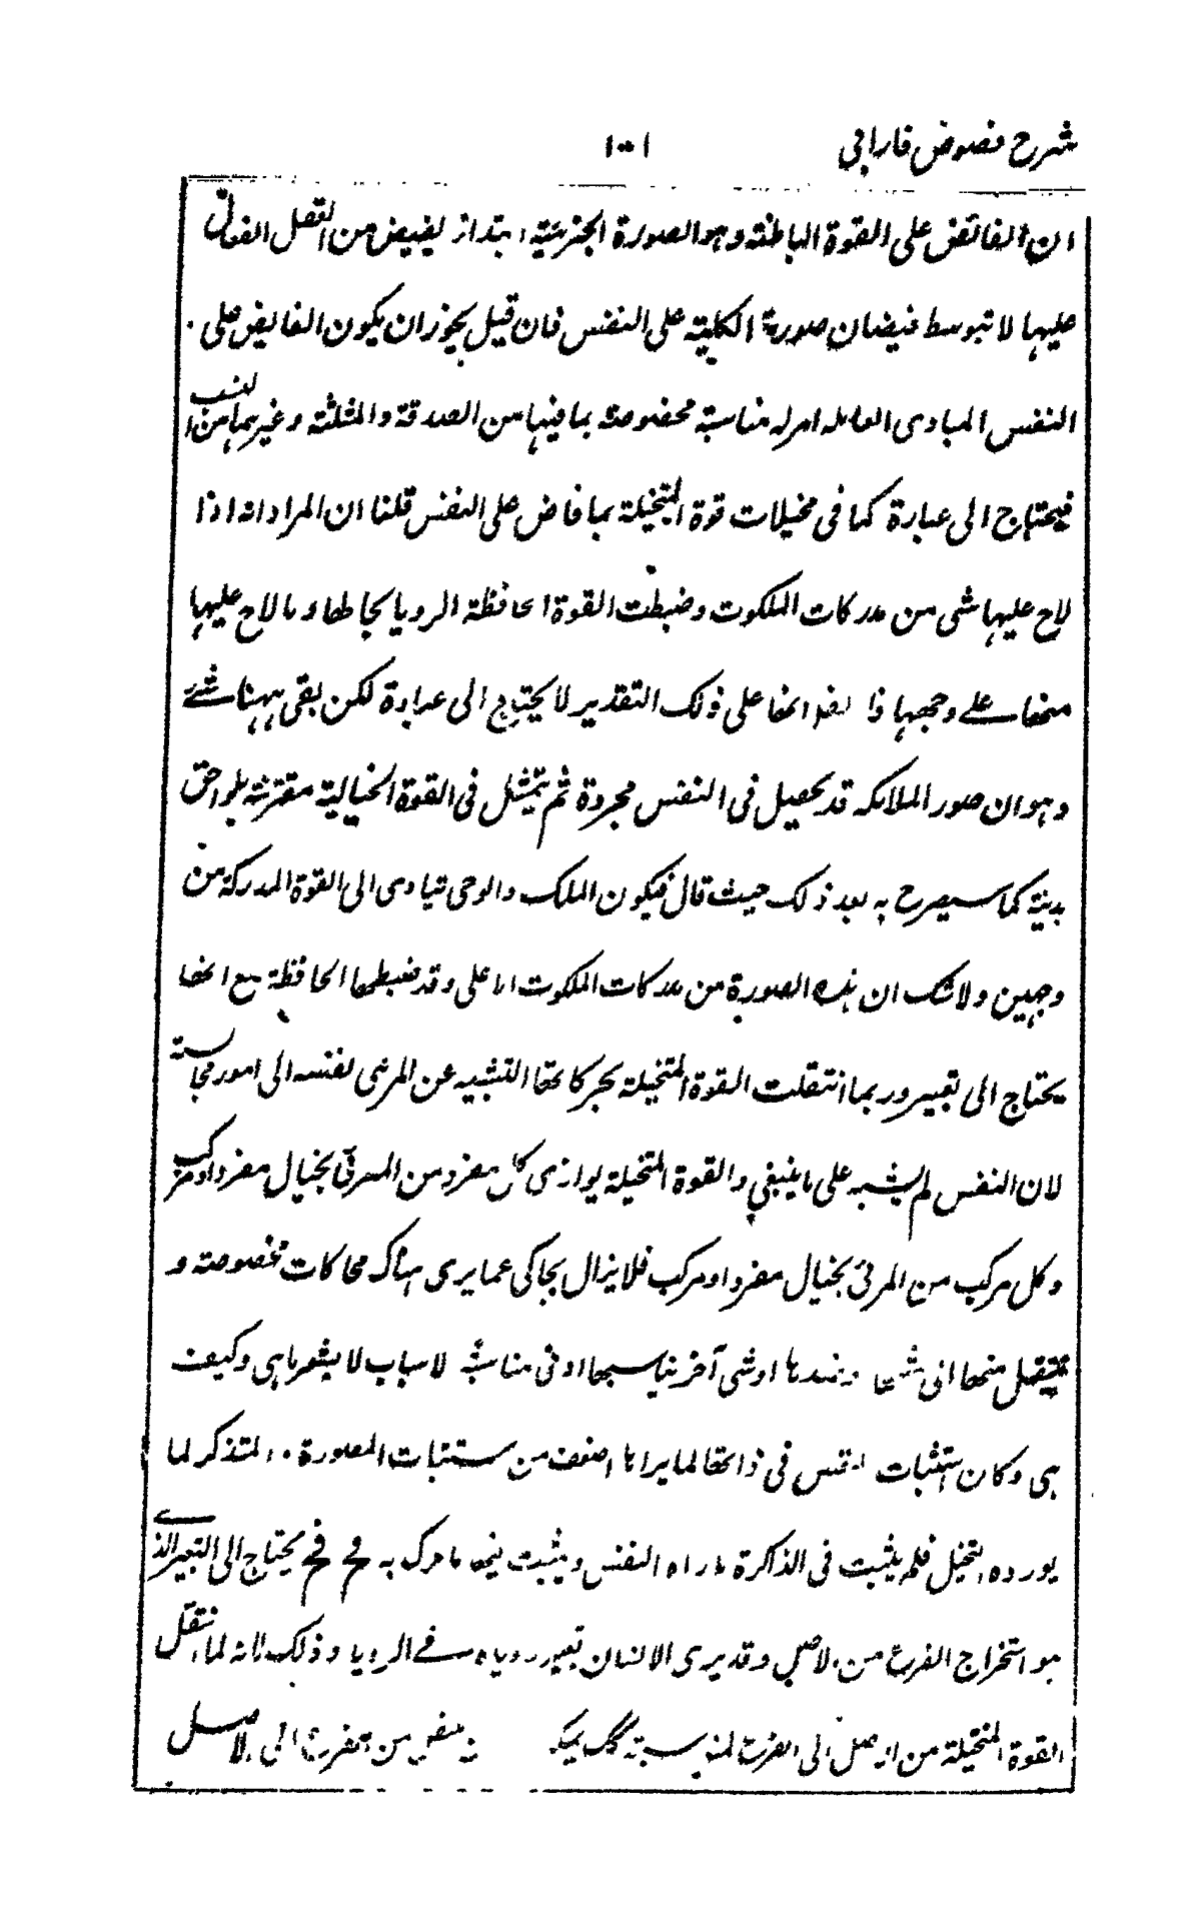 شرح فصوص فارابی ۱۰۱
ان الفائض على القوة الباطنة وهو الصورة الجزئية ابتداء يفيض من العقل الفعال
عليها لا بتوسط فيضان صورة الكلية على النفس فان قيل يجوز ان يكون الفايض على
النفس المبادى العاملة امر له مناسبة مخصوصة بما فيها من الصدقة والمثلثة وغيرهما من النسب
فيحتاج الى عبارة كما فى مخيلات قوة المتخيلة بما فاض على النفس قلنا ان المراد انه اذا
لاح عليها شى من مدركات الملكوت وضبطت القوة الحافظة الرويا بحالها وما لاح عليها
منها على وجهها ذلك التقدير لا يحتاج الى عبارة لكن بقى ههنا شئ
وهو ان صور الملائكة قد يحصل فى النفس مجردة ثم يتمثل فى القوة الخيالية مقترنة بلواحق
بدنية كما سيصرح به بعد ذلك حيث قال فيكون الملك والوحى تيادى الى القوة المدركة من
وجهين ولا شك ان هذه الصورة من مدركات الملكوت الاعلى وقد ضبطها الحافظة مع انها
يحتاج الى تعبير وربما انتقلت القوة المتخيلة بحركاتها التشبيه عن المرئى لنفسه الى امور مجانسة
لان النفس لم يشبه على ما ينبغي والقوة المتخيلة يوازى كل مفرد من المرئى بخيال مفرد او مركب
وكل مركب من المرئى بخيال مفرد او مركب فلا يزال يحاكى عما يرى هناك محاكات مخصوصة و
ينتقل منها الى شبهها وضدها او شى آخر يناسبها ادنى مناسبة لاسباب لا يشعر ما هى وكيف
هى وكان استثبات النفس فى ذاتها لما يراها اضعف من استثبات المصورة والمتذكر لما
يورده التخيل فلم يثبت فى الذاكرة ما راه النفس ويثبت فيها ما حرك به فح يحتاج الى التعبير الذى
هو استخراج الفرع من الاصل وقد يرى الانسان تعبير روياه فى الرويا وذلك لانه لما انتقل
القوة المتخيلة من الاصل الى الفرع لمناسبة من الفرع الى الاصل